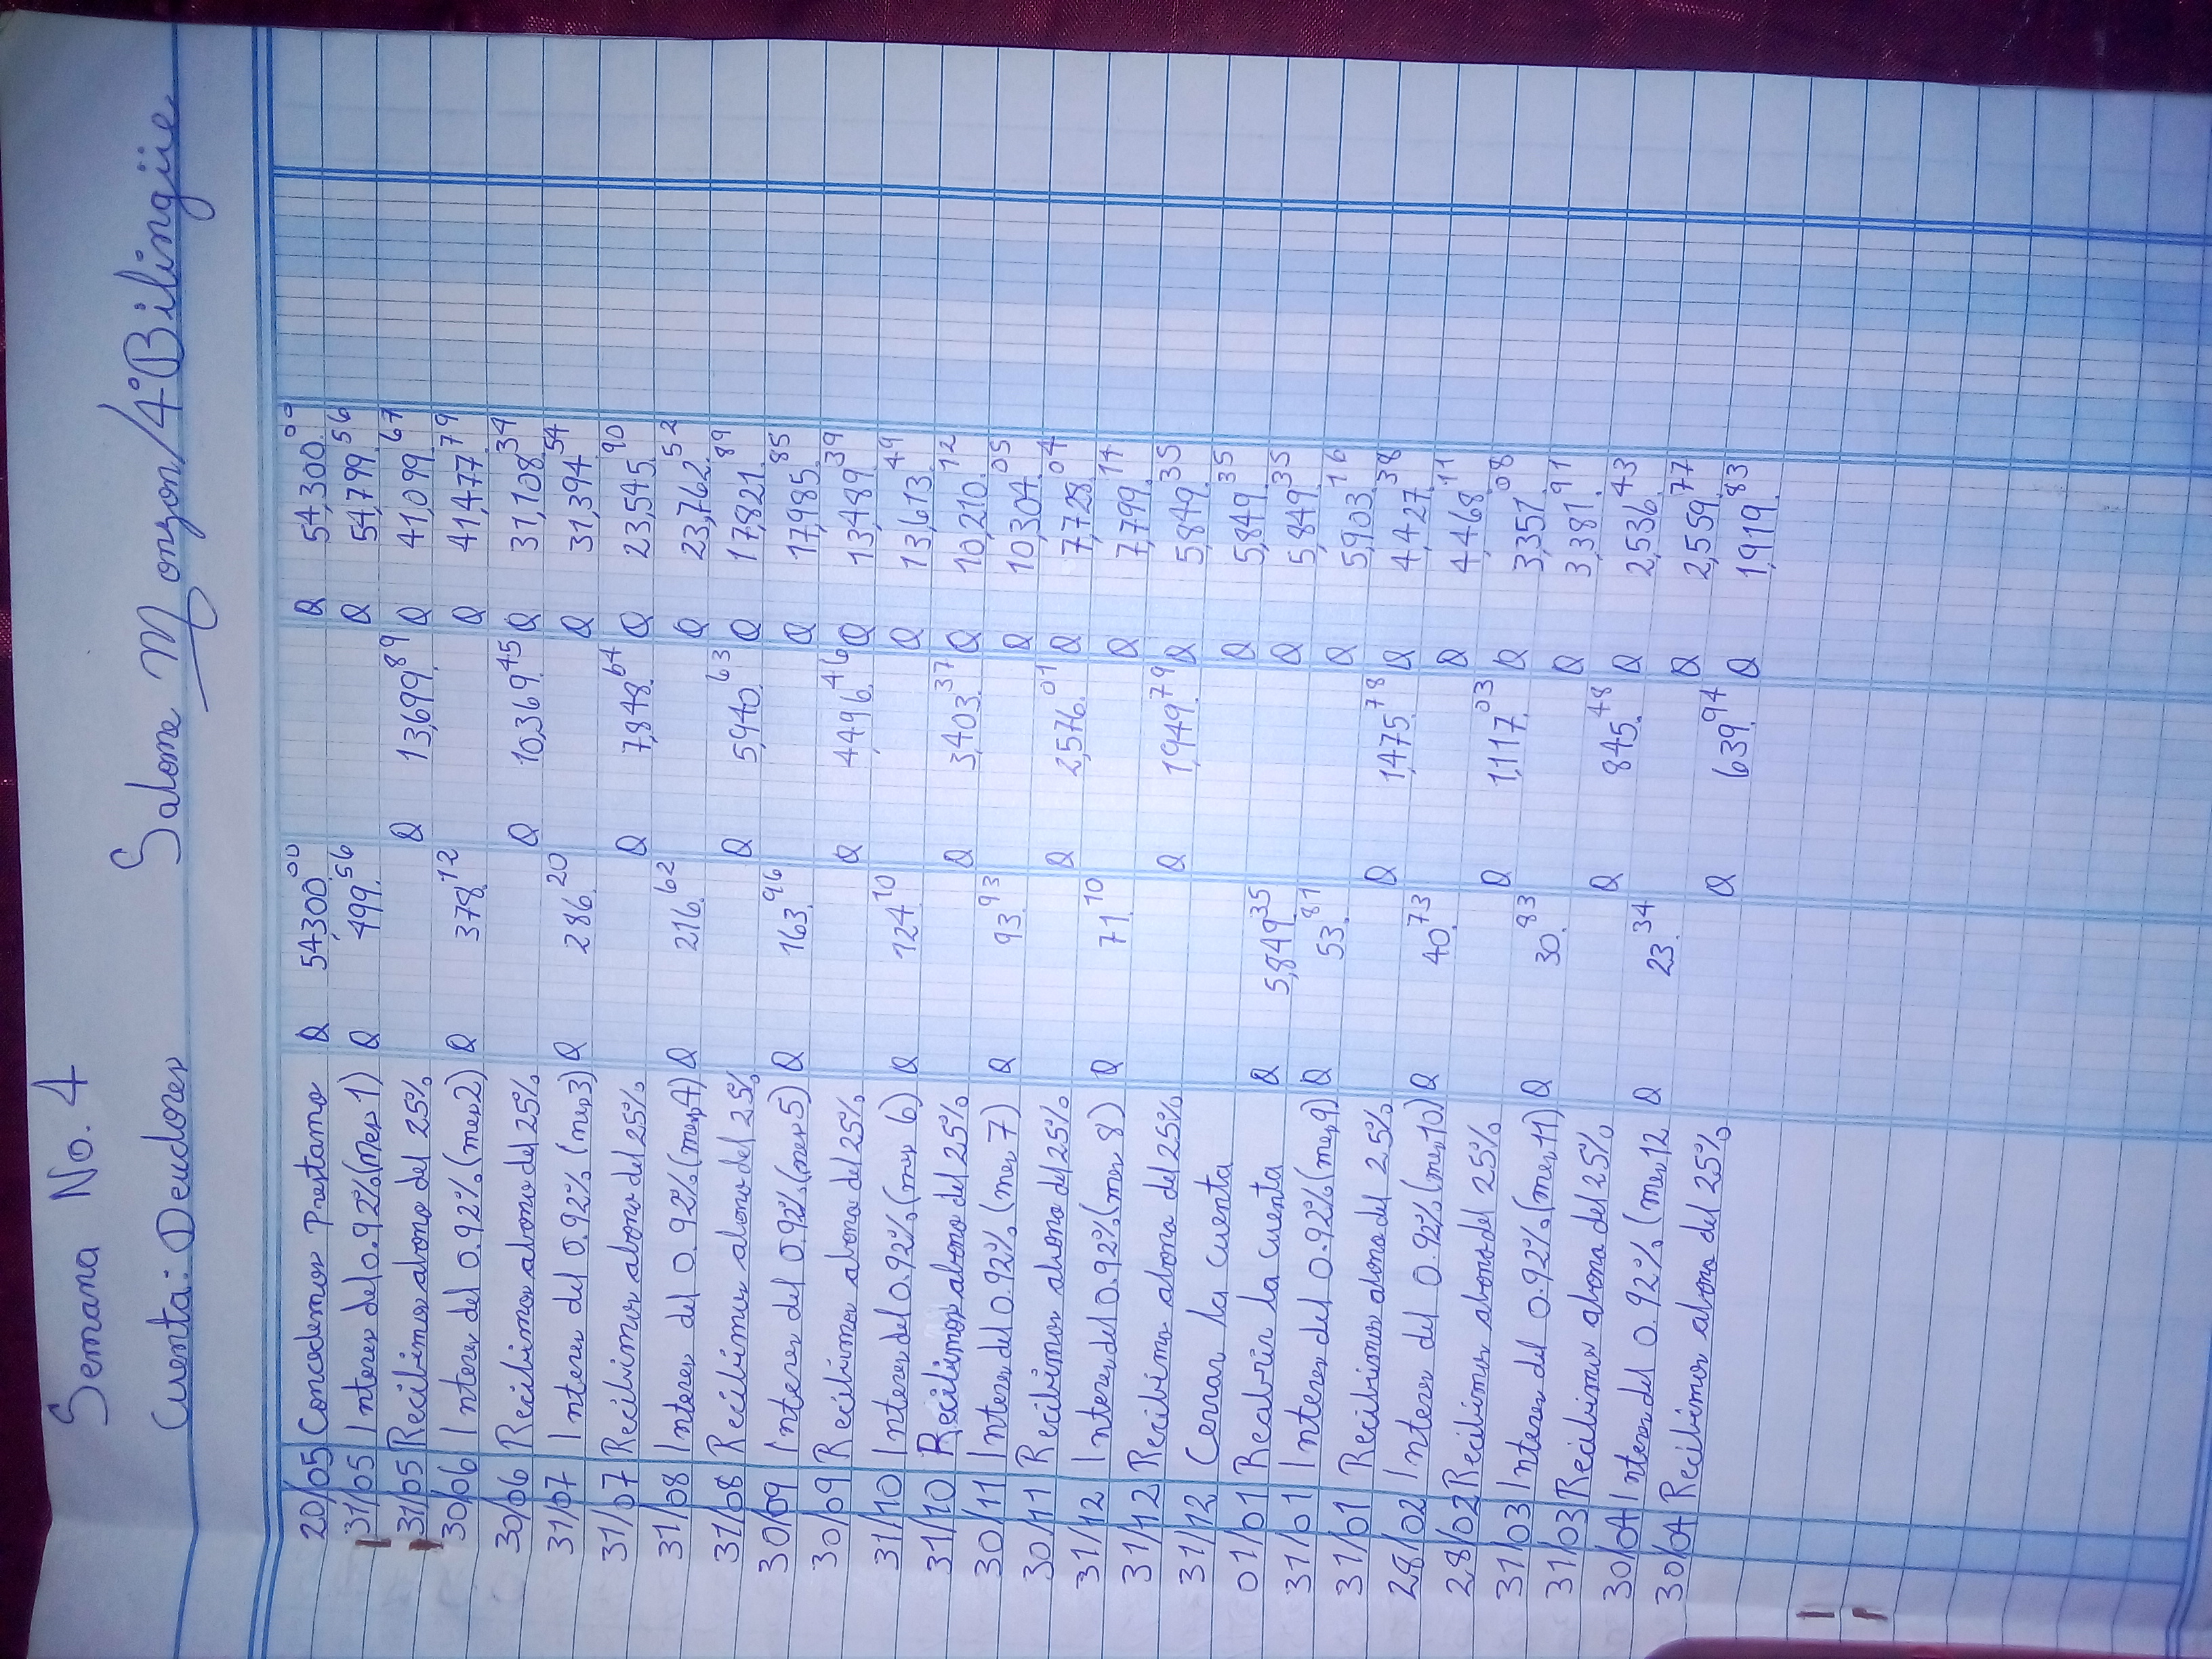 Semana No. 4
Cuenta: Deudores Salome Monzon/4°Bilingüe
20/05 Concedemos Prestamo Q 54,300.00 Q 54,300.00
31/05 Interes del 0.92% (Mes 1) Q 499.56 Q 54,799.56
31/05 Recibimos abono del 25% Q 13,699.89 Q 41,099.67
30/06 Interes del 0.92% (mes 2) Q 378.12 Q 41,477.79
30/06 Recibimos abono del 25% Q 10,369.45 Q 31,108.34
31/07 Interes del 0.92% (mes 3) Q 286.20 Q 31,394.54
31/07 Recibimos abono del 25% Q 7,848.64 Q 23,545.90
31/08 Interes del 0.92% (mes 4) Q 216.62 Q 23,762.52
31/08 Recibimos abono del 25% Q 5,940.63 Q 17,821.89
30/09 Interes del 0.92% (mes 5) Q 163.96 Q 17,985.85
30/09 Recibimos abono del 25% Q 4,496.46 Q 13,489.39
31/10 Interes del 0.92% (mes 6) Q 124.10 Q 13,613.49
31/10 Recibimos abono del 25% Q 3,403.37 Q 10,210.12
30/11 Interes del 0.92% (mes 7) Q 93.93 Q 10,304.05
30/11 Recibimos abono del 25% Q 2,576.01 Q 7,728.04
31/12 Interes del 0.92% (mes 8) Q 71.10 Q 7,799.14
31/12 Recibimo abono del 25% Q 1,949.79 Q 5,849.35
31/12 Cerrar la cuenta Q 5,849.35
01/01 Reabrir la cuenta Q 5,849.35 Q 5,849.35
31/01 Interes del 0.92% (mes 9) Q 53.81 Q 5,903.16
31/01 Recibimos abono del 25% Q 1,475.78 Q 4,427.38
28/02 Interes del 0.92% (mes 10) Q 40.73 Q 4,468.11
28/02 Recibimos abono del 25% Q 1,117.03 Q 3,351.08
31/03 Interes del 0.92% (mes 11) Q 30.83 Q 3,381.91
31/03 Recibimos abono del 25% Q 845.48 Q 2,536.43
30/04 Interes del 0.92% (mes 12 Q 23.34 Q 2,559.77
30/04 Recibimos abono del 25% Q 639.94 Q 1,919.83